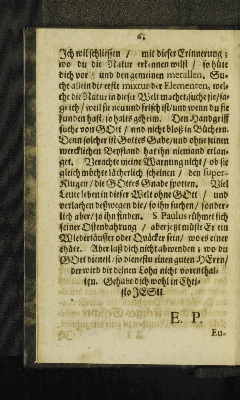 6.
Jch wil schliessen / mit dieser Erinnerung ;
wo du die Natur erkennen wilst / so hüte
dich vor und den gemeinen metallen, Su-
che allein die erste mixtur der Elementen, wel-
che die Natur in dieser Welt machet; suche sie/
weil sie neu und frisch ist/ und wenn du sie
funden hast/ so halts geheim. Den Handgriff
suche von GOtt / und nicht bloß in Büchern.
Denn solcher ist Gottes Gabe/ und ohne seinen
mercklichen Beystand hat ihn niemand erlan-
get. Verachte meine Warnung nicht / ob sie
gleich möchte lächerlich scheinen / den super-
Klugen / die GOttes Gnade spotten. Viel
Leute leben in dieser Welt ohne GOtt / und
verlachen deßwegen die/ so ihn suchen / sonder-
lich aber/ so ihn finden. S Paulus rühmet sich
seiner Offenbahrung / aber jetzt müste Er ein
Wiedertäuffer oder Quäcker seyn/ wo es einer
thäte. Aber laß dich nicht abwenden ; wo du
GOtt dienest/ so dienestu einen guten HErrn/
der wird dir deinen Lohn nicht vorenthal-
ten. Gehabe dich wohl in Chri-
sto JESU.
E. P.
Eu-